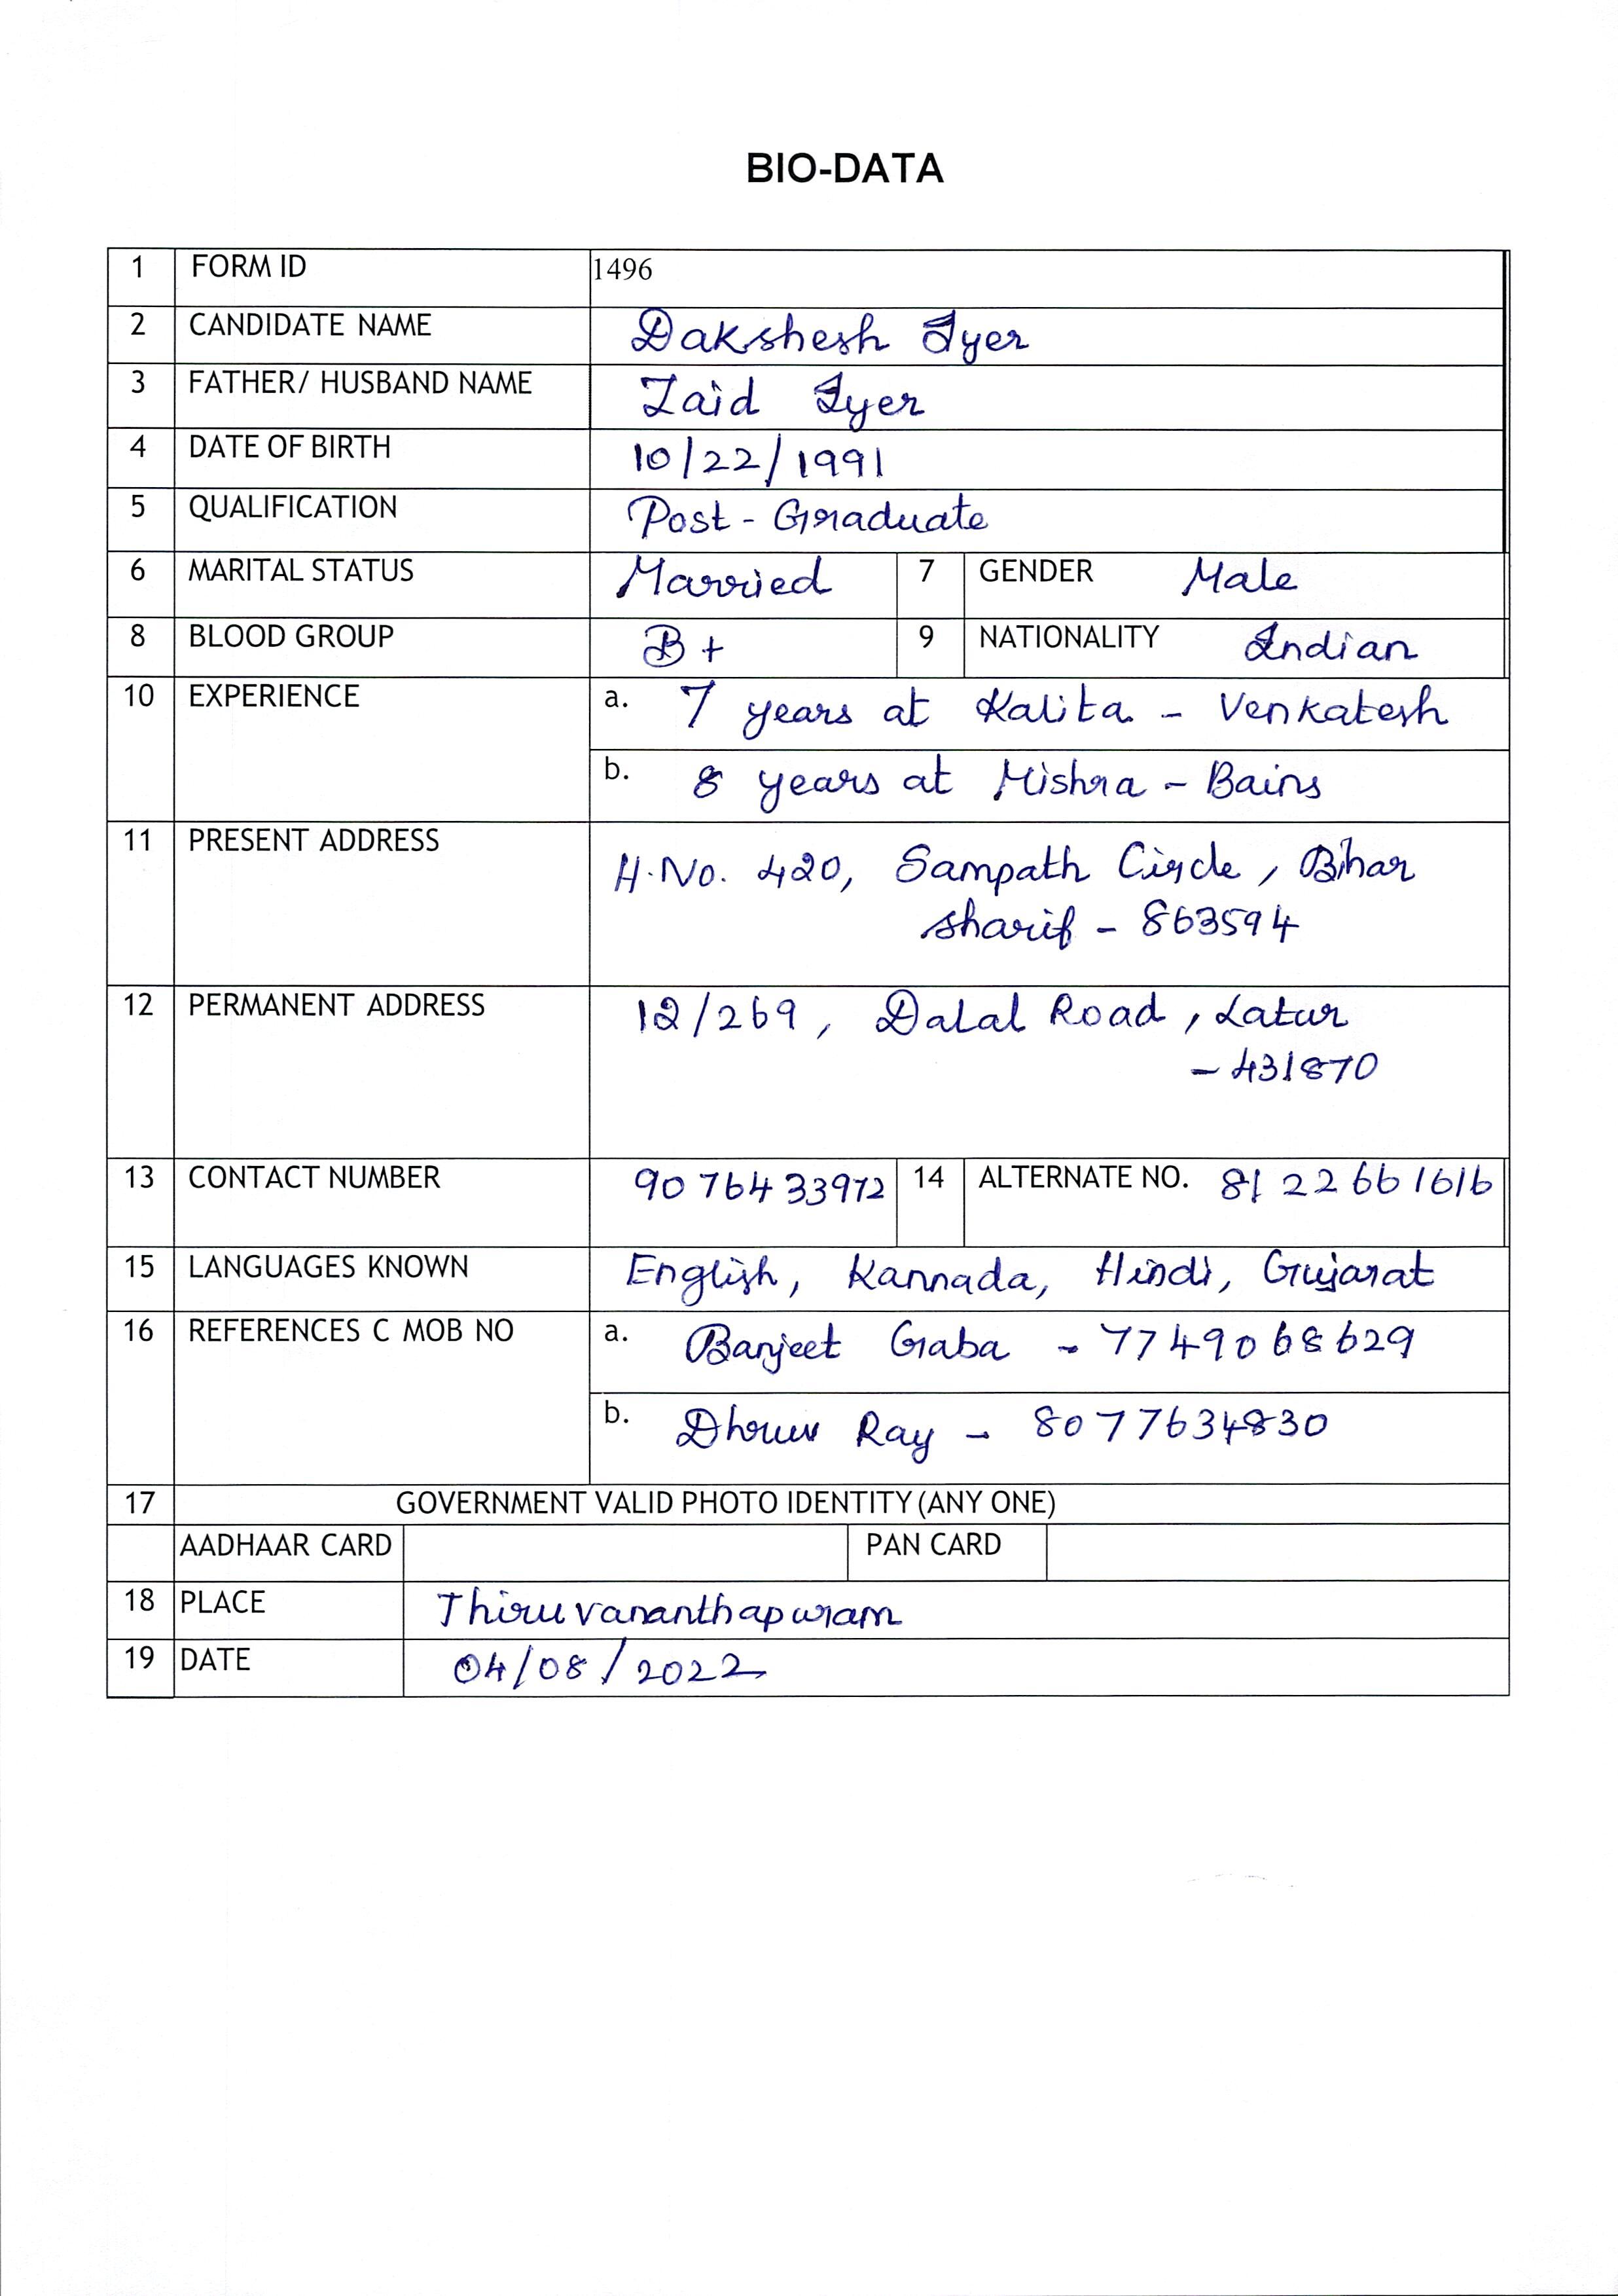 BIO-DATA
1 FORM ID 1496
2 CANDIDATE NAME Dakshesh Iyer
3 FATHER/ HUSBAND NAME Zaid Iyer
4 DATE OF BIRTH 10/22/1991
5 QUALIFICATION Post - Graduate
6 MARITAL STATUS Married 7 GENDER Male
8 BLOOD GROUP B+ 9 NATIONALITY Indian
10 EXPERIENCE a. 7 years at Kalita - Venkatesh
b. 8 years at Mishra - Bains
11 PRESENT ADDRESS
H.No. 420, Sampath Circle, Bihar
sharif - 863594
12 PERMANENT ADDRESS 12/269, Dalal Road, Latur
- 431870
13 CONTACT NUMBER 9076433972 14 ALTERNATE NO. 8122661616
15 LANGUAGES KNOWN English, Kannada, Hindi, Gujarat
16 REFERENCES C MOB NO a. Banjeet Gaba - 7749068629
b. Dhruv Ray - 8077634830
17 GOVERNMENT VALID PHOTO IDENTITY (ANY ONE)
AADHAAR CARD PAN CARD
18 PLACE Thiruvananthapuram
19 DATE 04/08/2022